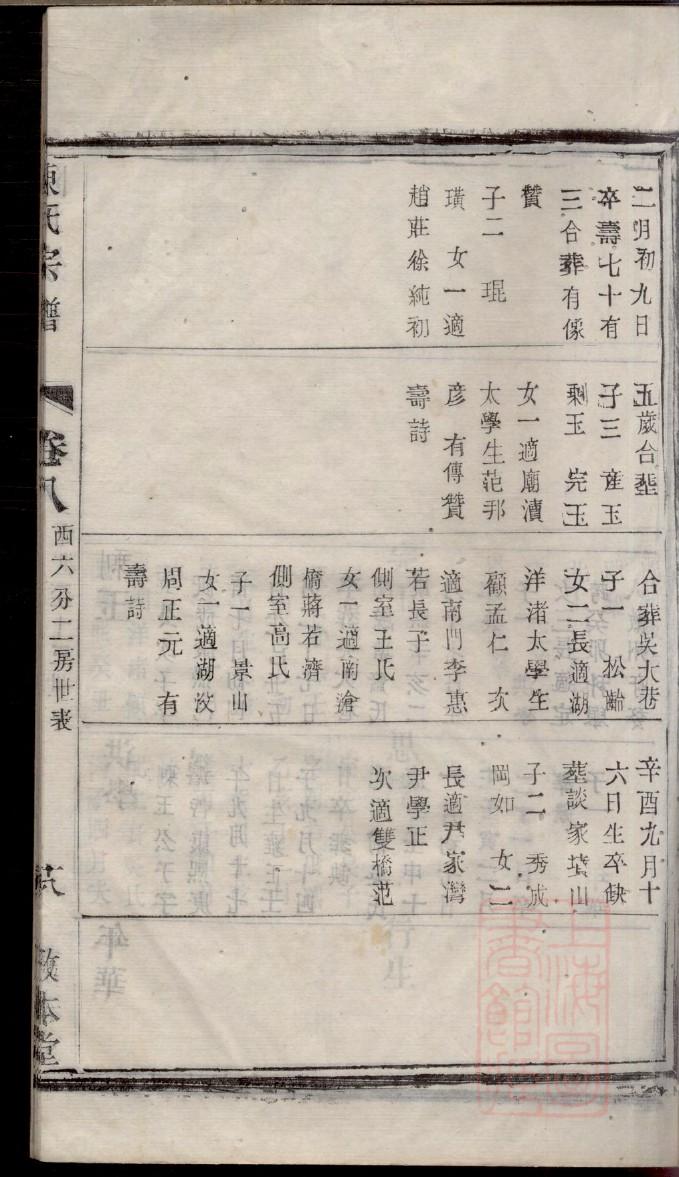 二月初九日
卒壽七十有
三合葬有像
贊
子二　琨
璜　女一適
趙莊徐純初
五歲合塟
子三　產玉
剩玉　完玉
女一適廟瀆
太學生范邦
彥　有傳贊
壽詩
合葬吴大巷
子一　松齡
女二長適湖
洋渚太學生
顧孟仁　次
適南門李惠
若長子
側室王氏
女一適南滄
橋蔣若濟
側室高氏
子一　景山
女一適湖㳇
周正元　有
壽詩
辛酉九月十
六日生卒缺
塟談家墳山
子二　秀成
岡如　女二
長適尹家灣
尹學正
次適雙橋范
陳氏宗譜
卷八
西六分二房世表
敦本堂
上海圖書館藏